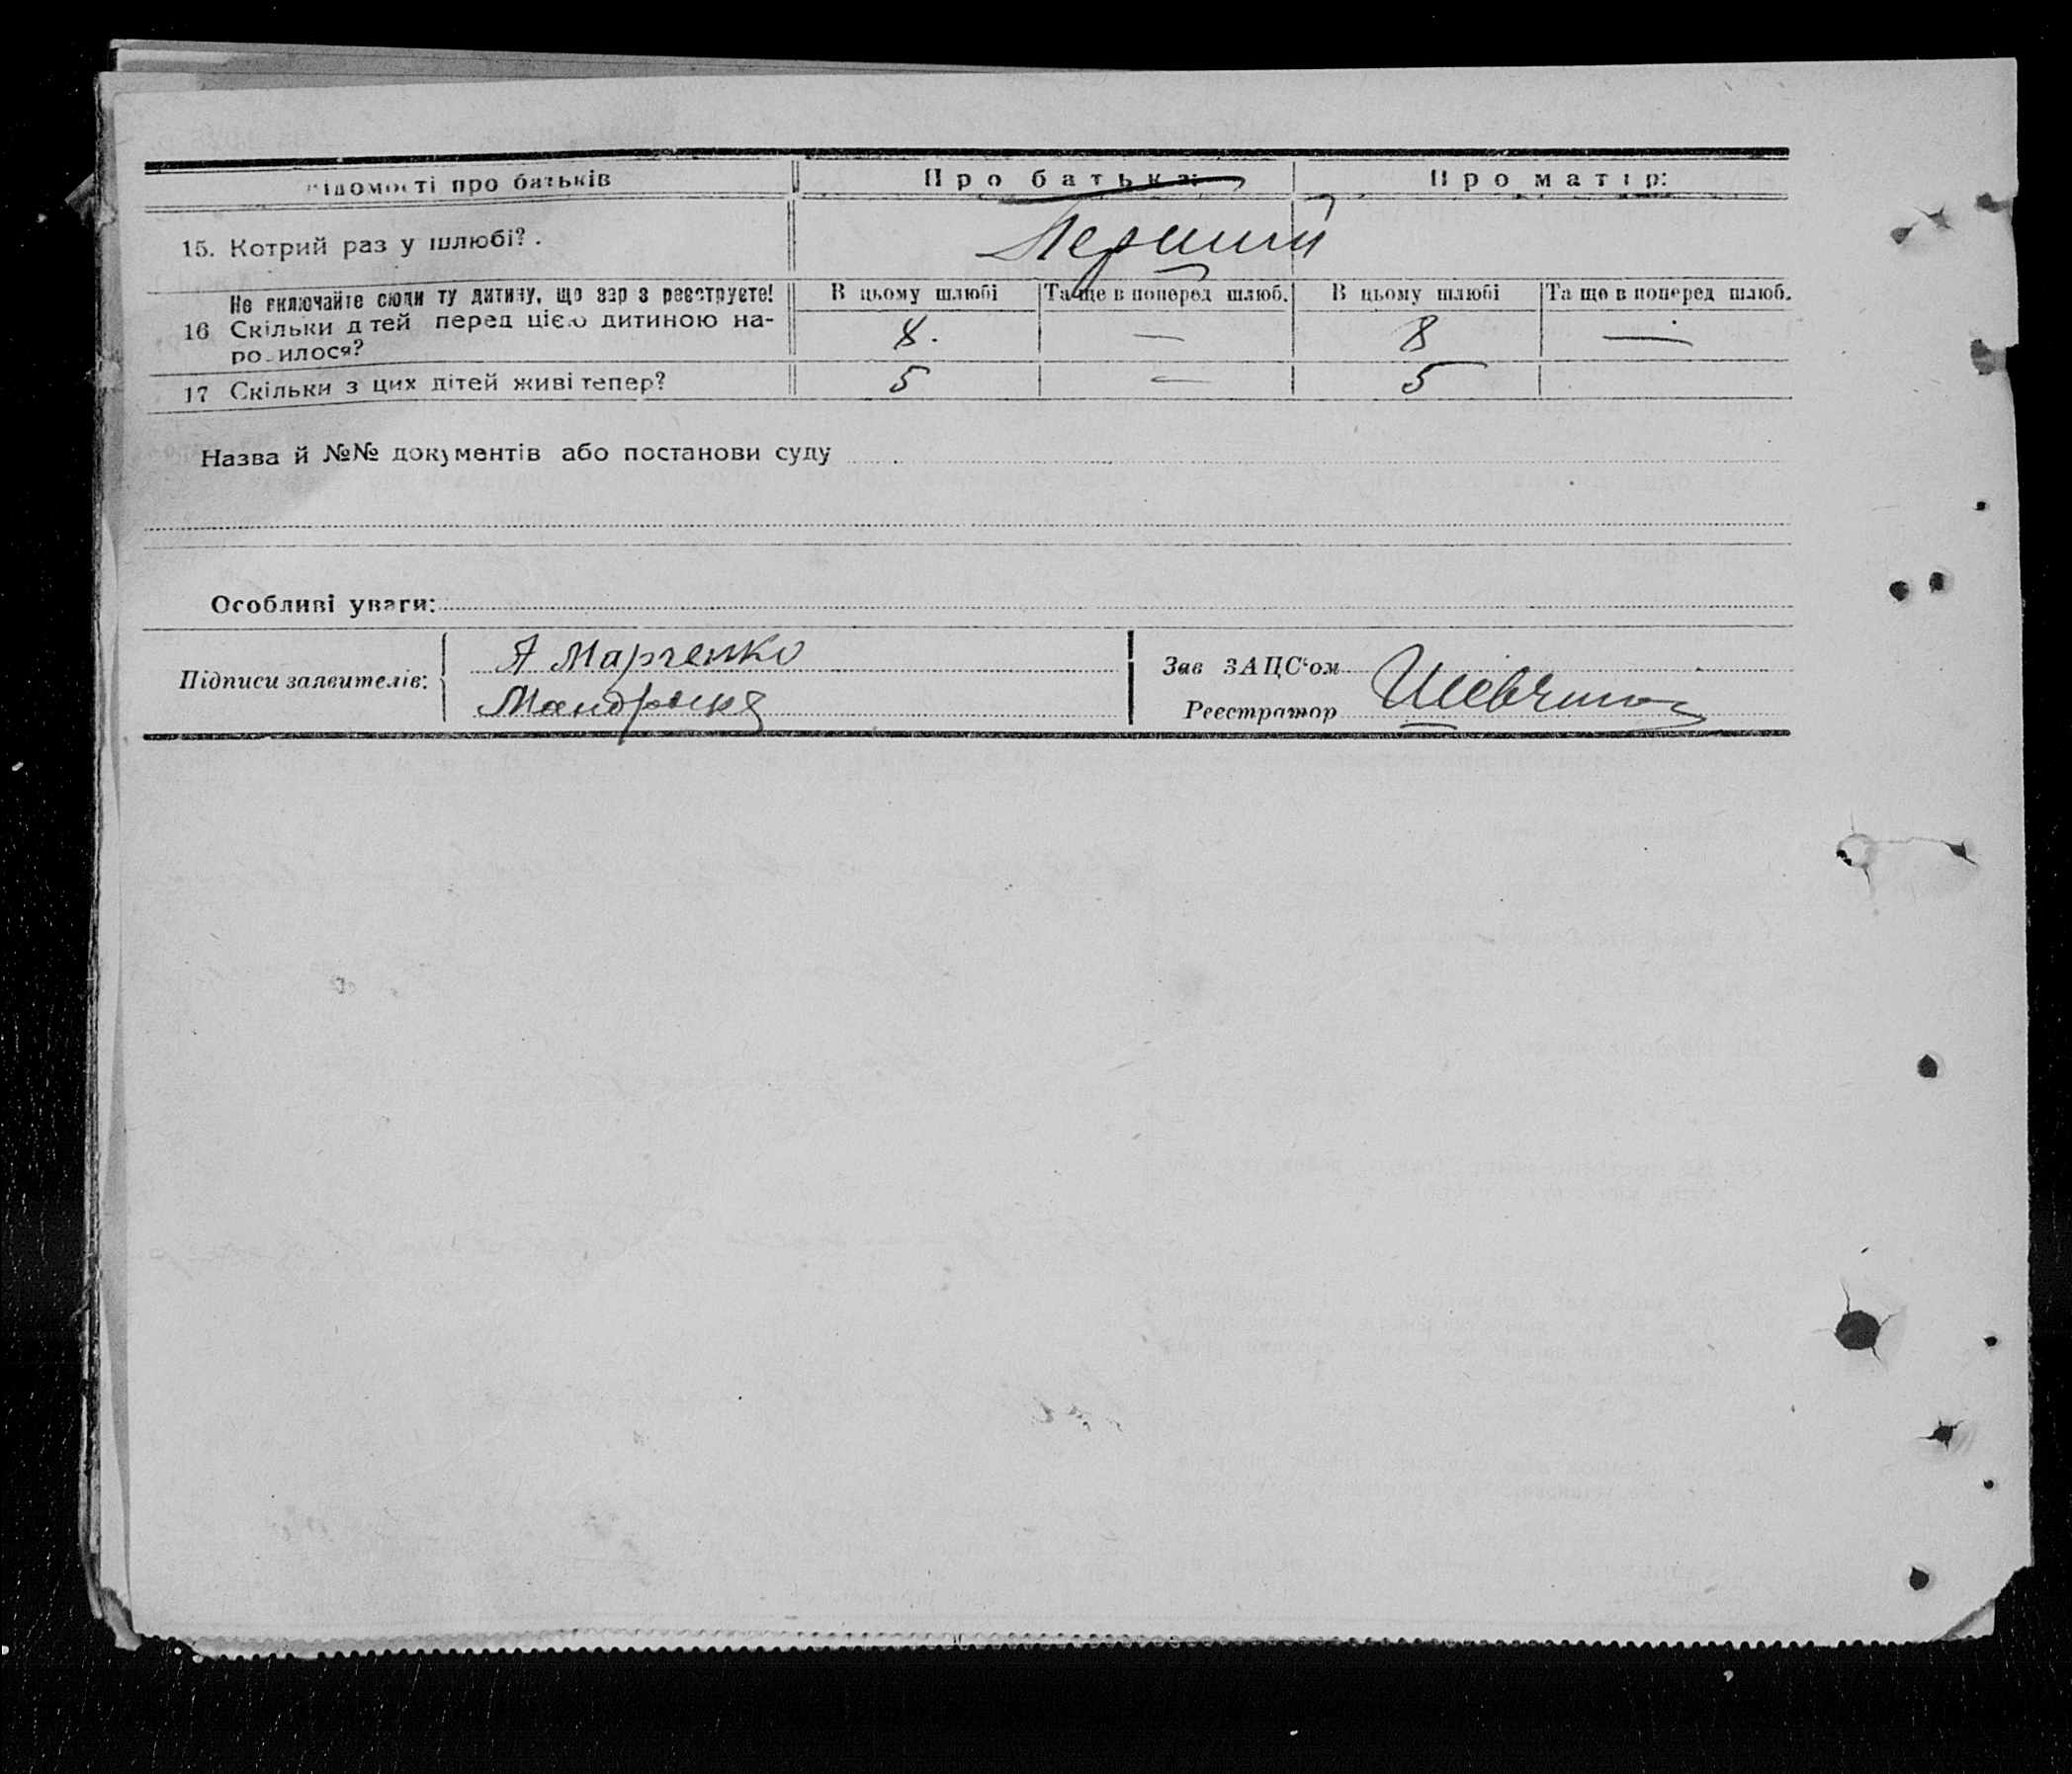 відомості про батьків
Про батька:
Про матір:
15. Котрий раз у шлюбі?.
Перший
Не включайте сюди ту дитину, що зараз реєструєте!
В цьому шлюбі
Та ще в поперед шлюб.
В цьому шлюбі
Та що в поперед шлюб.
16 Скільки дітей перед цією дитиною на-
родилося?
8.
—
8
—
17 Скільки з цих дітей живі тепер?
5
—
5
Назва й №№ документів або постанови суду
Особливі уваги:
Підписи заявителів:
Я Марченко
Мандрыка
Зав ЗАЦС'ом
Реєстратор